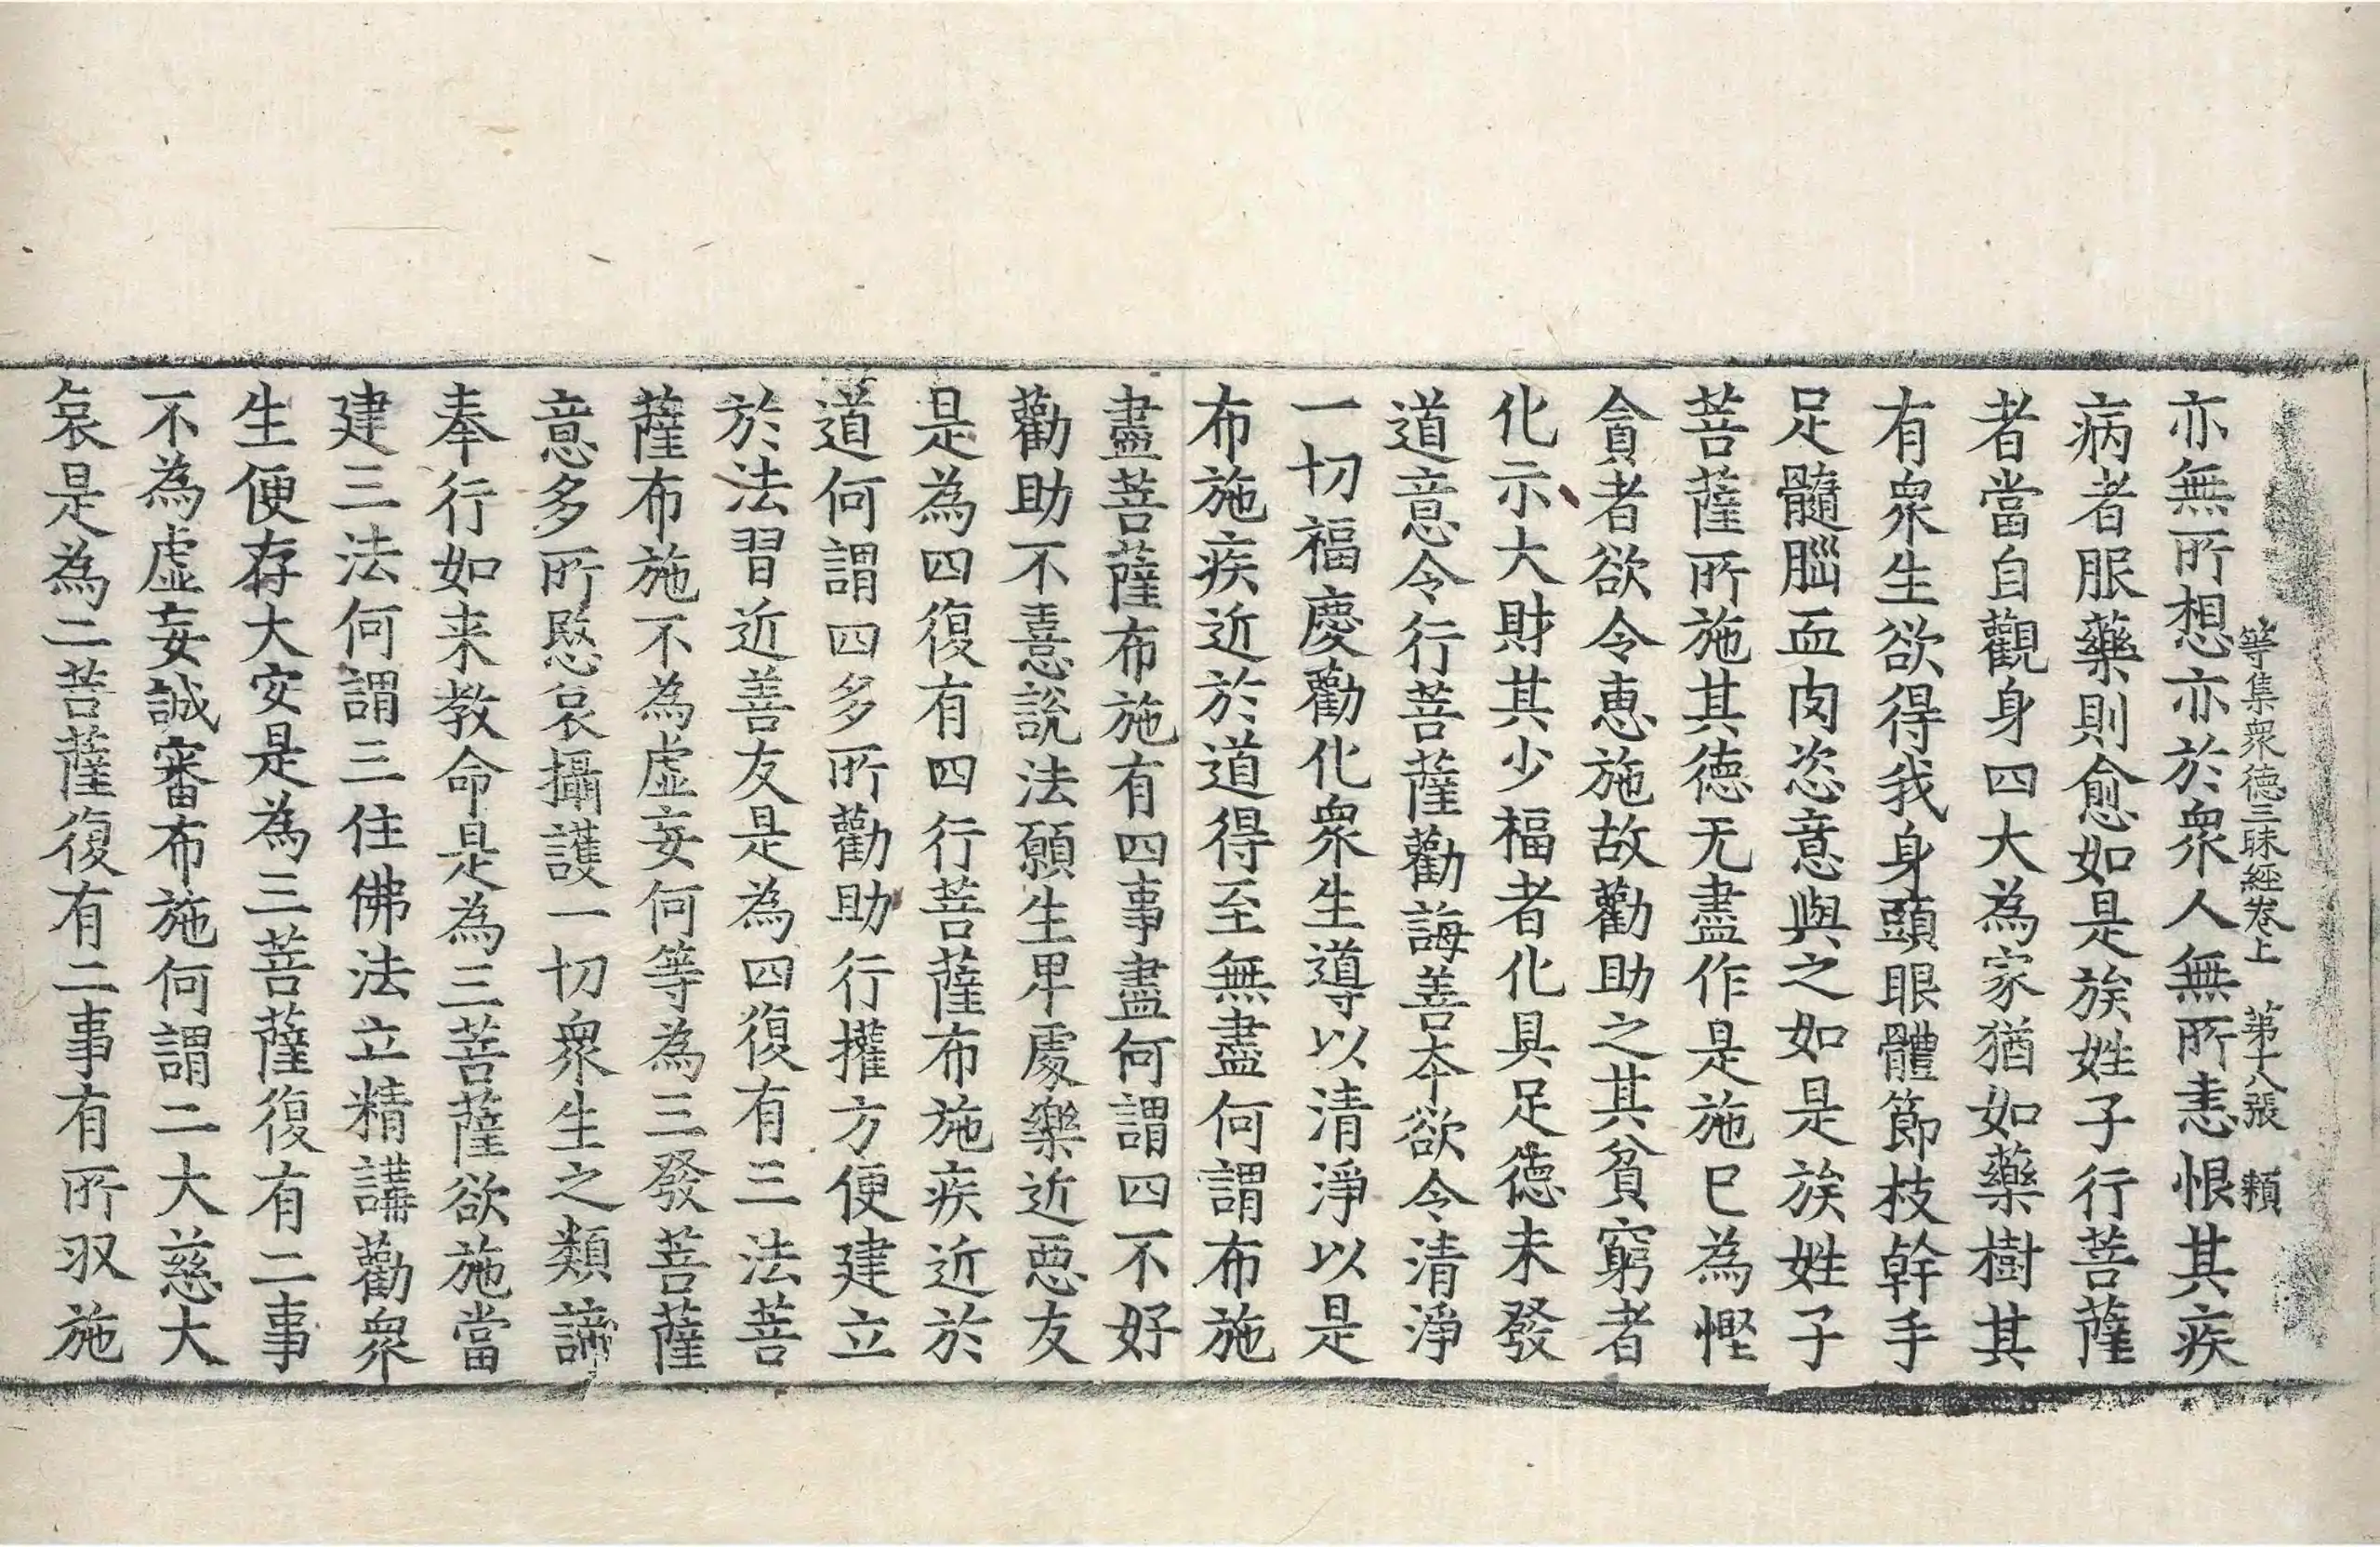 等集衆德三昧經卷上　第十八張　頼
亦無所想亦於衆人無所恚恨其疾
病者服藥則愈如是族姓子行菩薩
者當自觀身四大為家猶如藥樹其
有衆生欲得我身頭眼體節枝幹手
足髓腦血肉恣意與之如是族姓子
菩薩所施其德无盡作是施已為慳
貪者欲令惠施故勸助之其貧窮者
化示大財其少福者化具足德未發
道意令行菩薩勸誨善本欲令清淨
一切福慶勸化衆生導以清淨以是
布施疾近於道得至無盡何謂布施
盡菩薩布施有四事盡何謂四不好
勸助不憙說法願生卑處樂近惡友
是為四復有四行菩薩布施疾近於
道何謂四多所勸助行權方便建立
於法習近善友是為四復有三法菩
薩布施不為虛妄何等為三發菩薩
意多所愍哀攝護一切衆生之類諦
奉行如来教命是為三菩薩欲施當
建三法何謂三住佛法立精講勸衆
生便存大安是為三菩薩復有二事
不為虛妄誠審布施何謂二大慈大
哀是為二菩薩復有二事有所㕛施